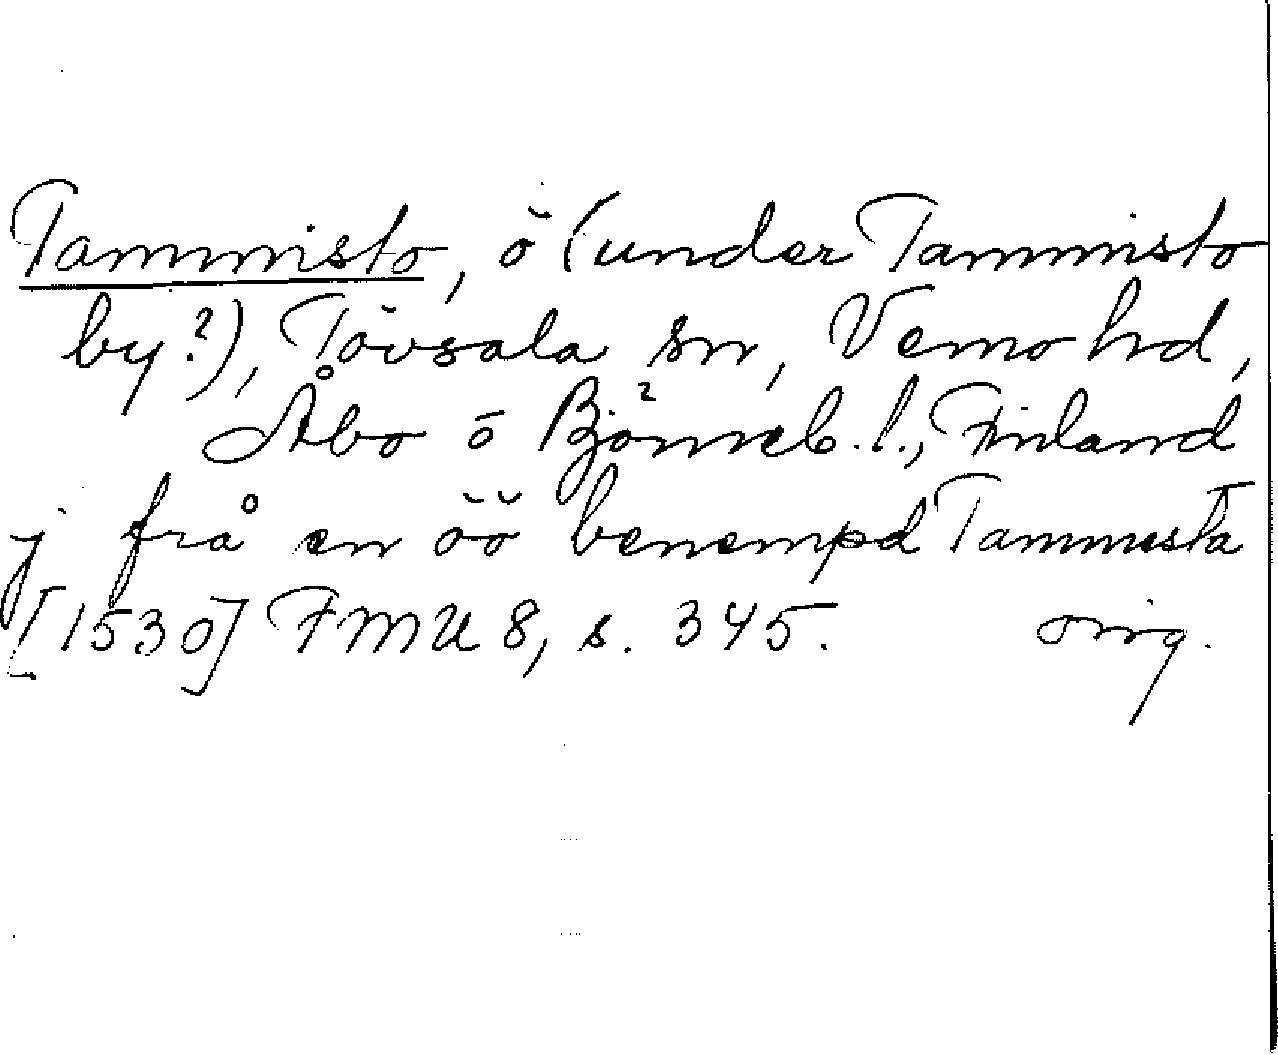 Tammisto, ö (under Tammisto
by?), Tövsala sn, Vemo hd,
Åbo o Björneb. l., Finland
j frå en öö benempd Tammista
[1530] FMU 8, s. 345. orig.